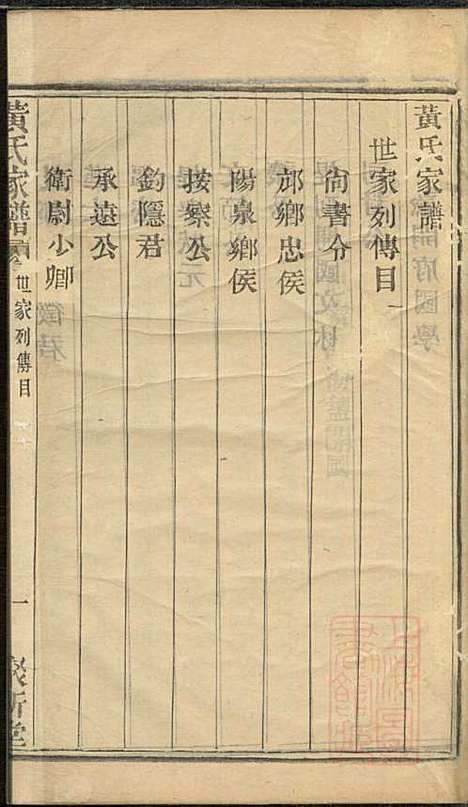 黃氏家譜
世家列傳目
尚書令
邡鄉忠侯
陽泉鄉侯
按察公
釣隱君
承遠公
衛尉少卿
黃氏家譜
世家列傳目
一